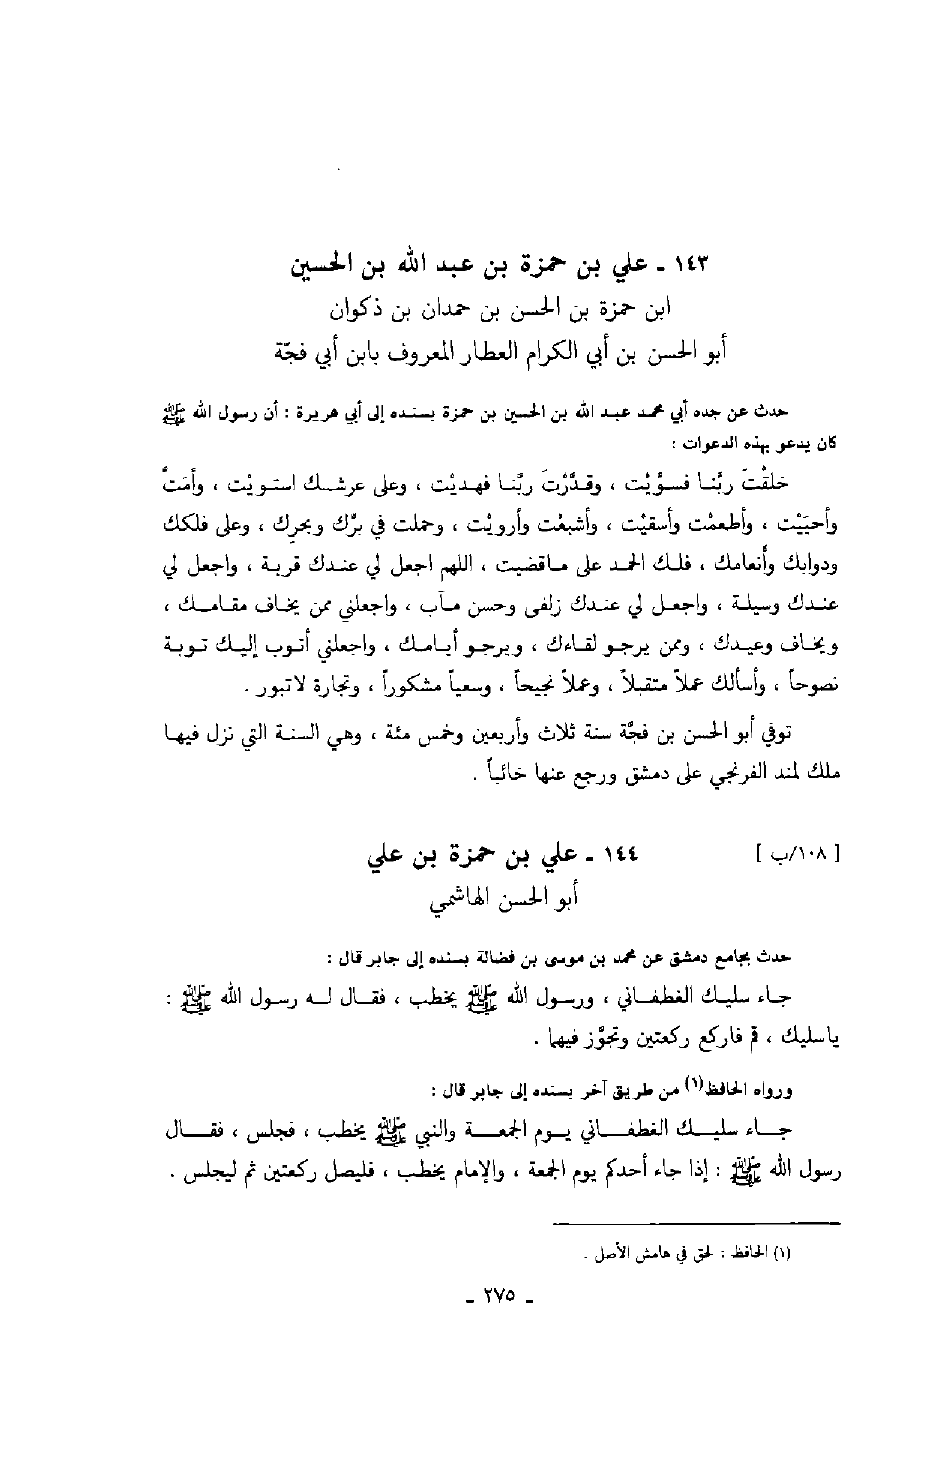 ١٤٣ ـ علي بن حمزة بن عبد الله بن الحسين
ابن حمزة بن الحسن بن حمدان بن ذكوان
أبو الحسن بن أبي الكرام العطار المعروف بابن أبي فجّة
حدث عن جده أبي محمد عبد الله بن الحسين بن حمزة بسنده إلى أبي هريرة : أن رسول الله ﷺ
كان يدعو بهذه الدعوات :
خلقْتَ ربَّنا فسوَّيْت ، وقدَّرْتَ ربَّنا فهديْت ، وعلى عرشك استويْت ، وأمَتَّ
وأحيَيْت ، وأطعمْت وأسقيْت ، وأشبعْت وأرويْت ، وحملت في برِّك وبحرِك ، وعلى فلكك
ودوابك وأنعامك ، فلك الحمد على ماقضيت ، اللهم اجعل لي عندك قربة ، واجعل لي
عندك وسيلة ، واجعل لي عندك زلفى وحسن مآب ، واجعلني ممن يخاف مقامك ،
ويخاف وعيدك ، وممن يرجو لقاءك ، ويرجو أيامك ، واجعلني أتوب إليك توبة
نصوحاً ، وأسألك عملاً متقبلاً ، وعملاً نجيحاً ، وسعياً مشكوراً ، وتجارة لاتبور .
توفي أبو الحسن بن فجَّة سنة ثلاث وأربعين وخمس مئة ، وهي السنة التي نزل فيها
ملك لمند الفرنجي على دمشق ورجع عنها خائباً .
[ ١٠٨/ب ] ١٤٤ ـ علي بن حمزة بن علي
أبو الحسن الهاشمي
حدث بجامع دمشق عن محمد بن موسى بن فضالة بسنده إلى جابر قال :
جاء سليك الغطفاني ، ورسول الله ﷺ يخطب ، فقال له رسول الله ﷺ :
ياسليك ، قم فاركع ركعتين وتجوَّز فيهما .
ورواه الحافظ(١) من طريق آخر بسنده إلى جابر قال :
جاء سليك الغطفاني يوم الجمعة والنبي ﷺ يخطب ، فجلس ، فقال
رسول الله ﷺ : إذا جاء أحدكم يوم الجمعة ، والإمام يخطب ، فليصل ركعتين ثم ليجلس .
(١) الحافظ : لحق في هامش الأصل .
ـ ٢٧٥ ـ